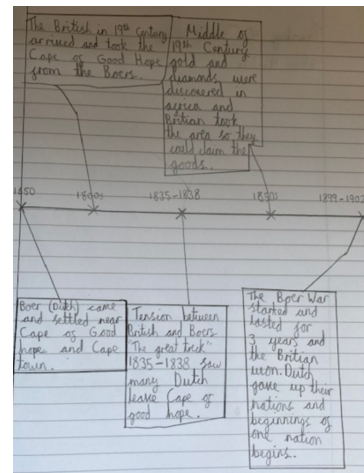 The British in 19th Century
arrived and took the
Cape of Good Hope
from the Boers.
Middle of
19th Century
gold and
diamonds were
discovered in
africa and
Britian took
the area so they
could claim the
goods.
1450
1800s
1835-1838
1850s
1899-1902
Boer (Dutch) came
and settled near
Cape of Good
hope and Cape
town.
Tension between
British and Boers
"The great trek"
1835-1838 saw
many Dutch
leave Cape of
good hope.
The Boer War
started and
lasted for
3 years and
the Britian
won. Dutch
gave up their
nations and
beginnings of
one nation
begins..